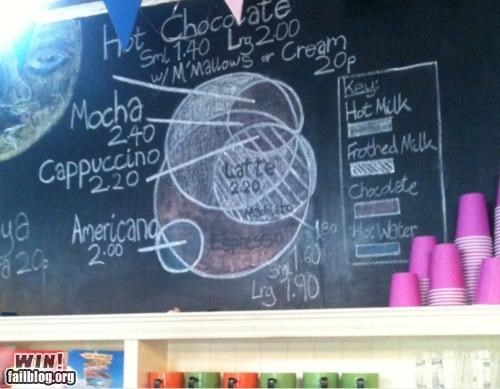 Hot Chocolate
Sml 1.40 Lrg 2.00
w/ M'Mallows or Cream
20p
Mocha
2.40
Cappuccino
2.20
Latte
2.20
Machiato
1.80
Americano
2.00
Espresso
Sml 1.60
Lrg 1.90
Key:
Hot Milk
Frothed Milk
Chocolate
Hot Water
20p
WIN!
failblog.org